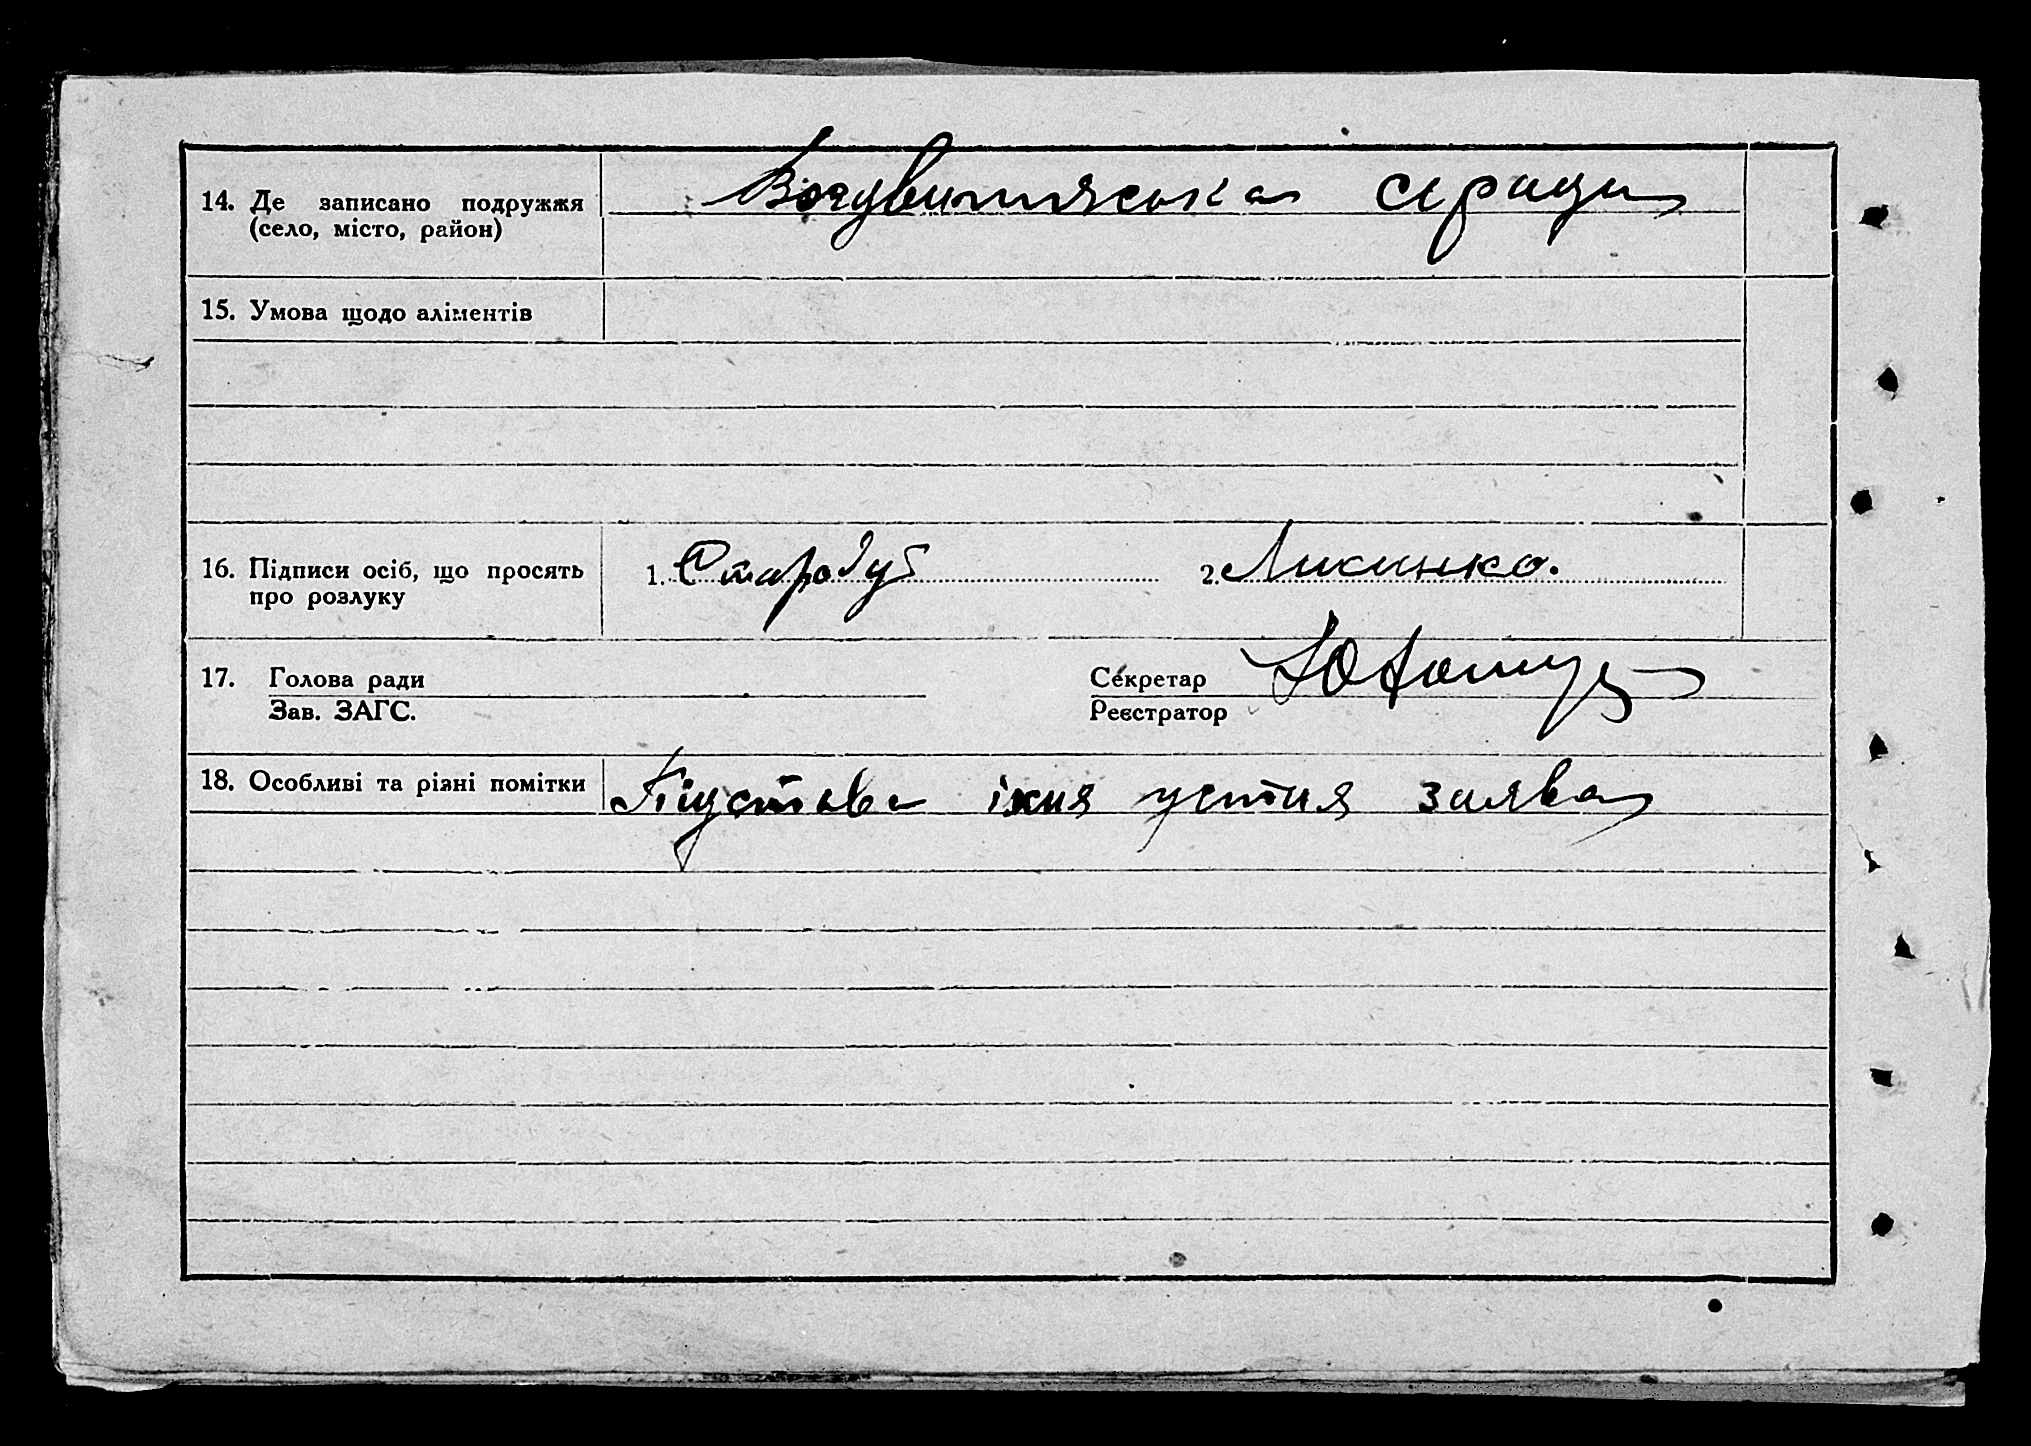 14. Де записано подружжя
(село, місто, район)
15. Умова щодо аліментів
16. Підписи осіб, що просять
про розлуку
1. Стародуб 2. Лисинко.
17. Голова ради Секретар
Зав. ЗАГС. Реєстратор
18. Особливі та різні помітки
їхня устня заява